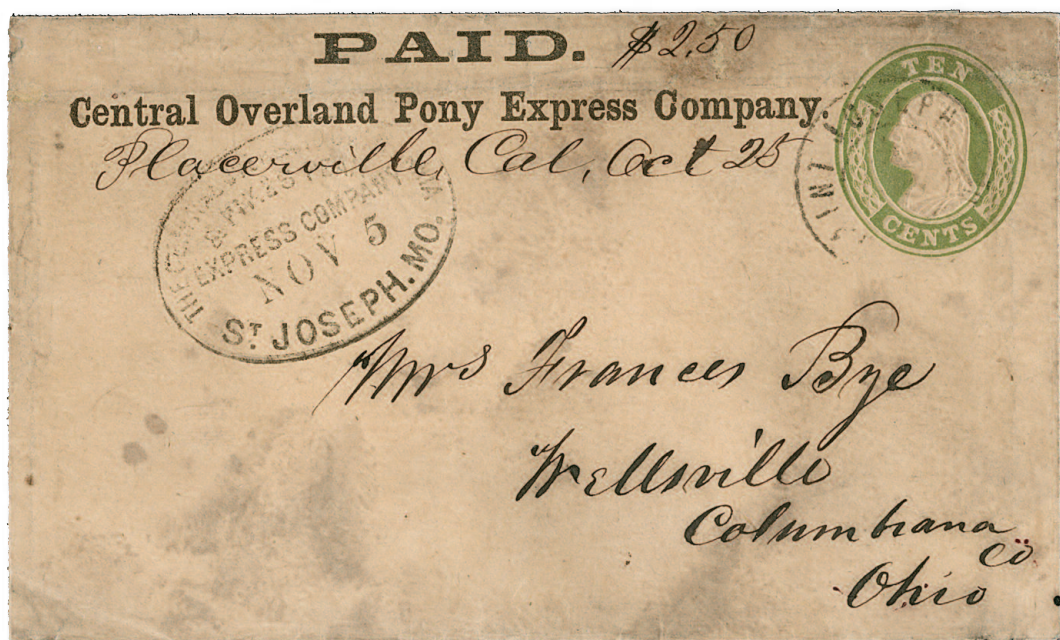 PAID. $2.50
Central Overland Pony Express Company.
Placerville, Cal, Oct 25
TEN
CENTS
THE CENTRAL
& PIKE'S
EXPRESS COMPANY
NOV 5
ST JOSEPH. MO.
SAINT JOSEPH
Mrs Frances Bye
Wellsville
Columbiana
Co
Ohio